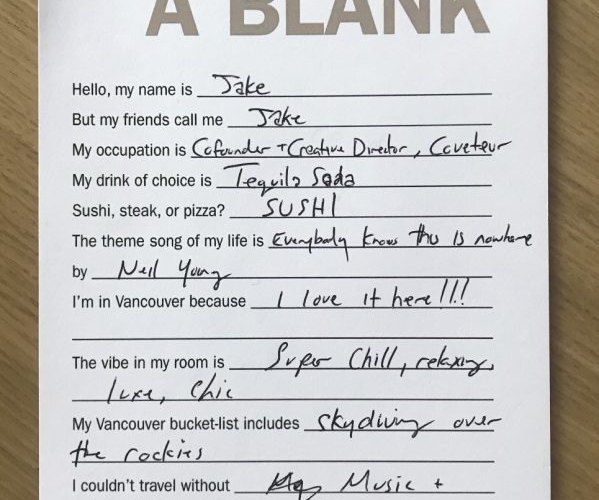 A BLANK
Hello, my name is Jake
But my friends call me Jake
My occupation is Cofounder + Creative Director, Coveteur
My drink of choice is Tequila Soda
Sushi, steak, or pizza? SUSHI
The theme song of my life is Everybody knows this is nowhere
by Neil Young
I'm in Vancouver because I love it here!!!
The vibe in my room is Super Chill, relaxing,
luxe, Chic
My Vancouver bucket-list includes skydiving over
the rockies
I couldn't travel without Music +